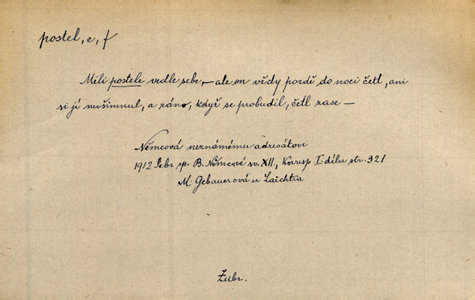 postel, e, f
Měli postele vedle sebe, — ale on vždy pozdě do noci četl, ani
si jí nevšimnul, a ráno, když se probudil, četl zase —
Němcová neznámému adresátovi
1912 Sebr. sp. B. Němcové sv. XII., Koresp I dílu str. 321
M. Gebauerová u Laichtra
Zubr.